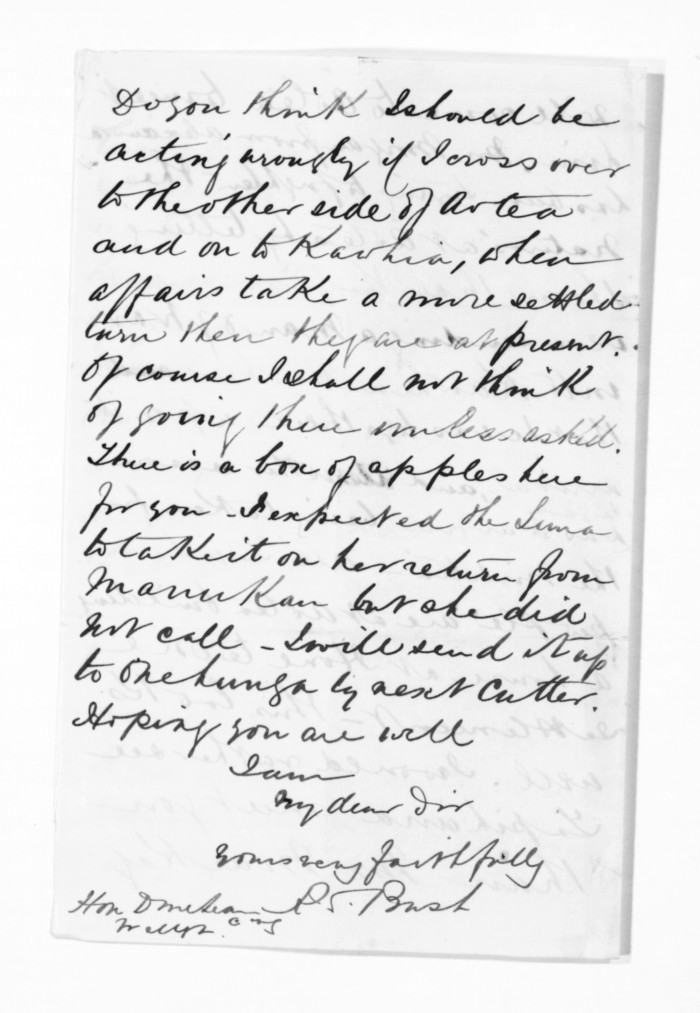 Do you think I should be
acting wrongly if I cross over
to the other side of Aotea
and on to Kawhia, when
affairs take a more settled
turn then they are at present.
Of course I shall not think
of going there unless asked.
There is a box of apples here
for you - I expected the Luna
to take it on her return from
Manukau but she did
not call - I will send it up
to Onehunga by next Cutter.
Hoping you are well
I am
My dear Sir
yours very faithfully
R. S. Bush
Hon D McLean
Wellgt.